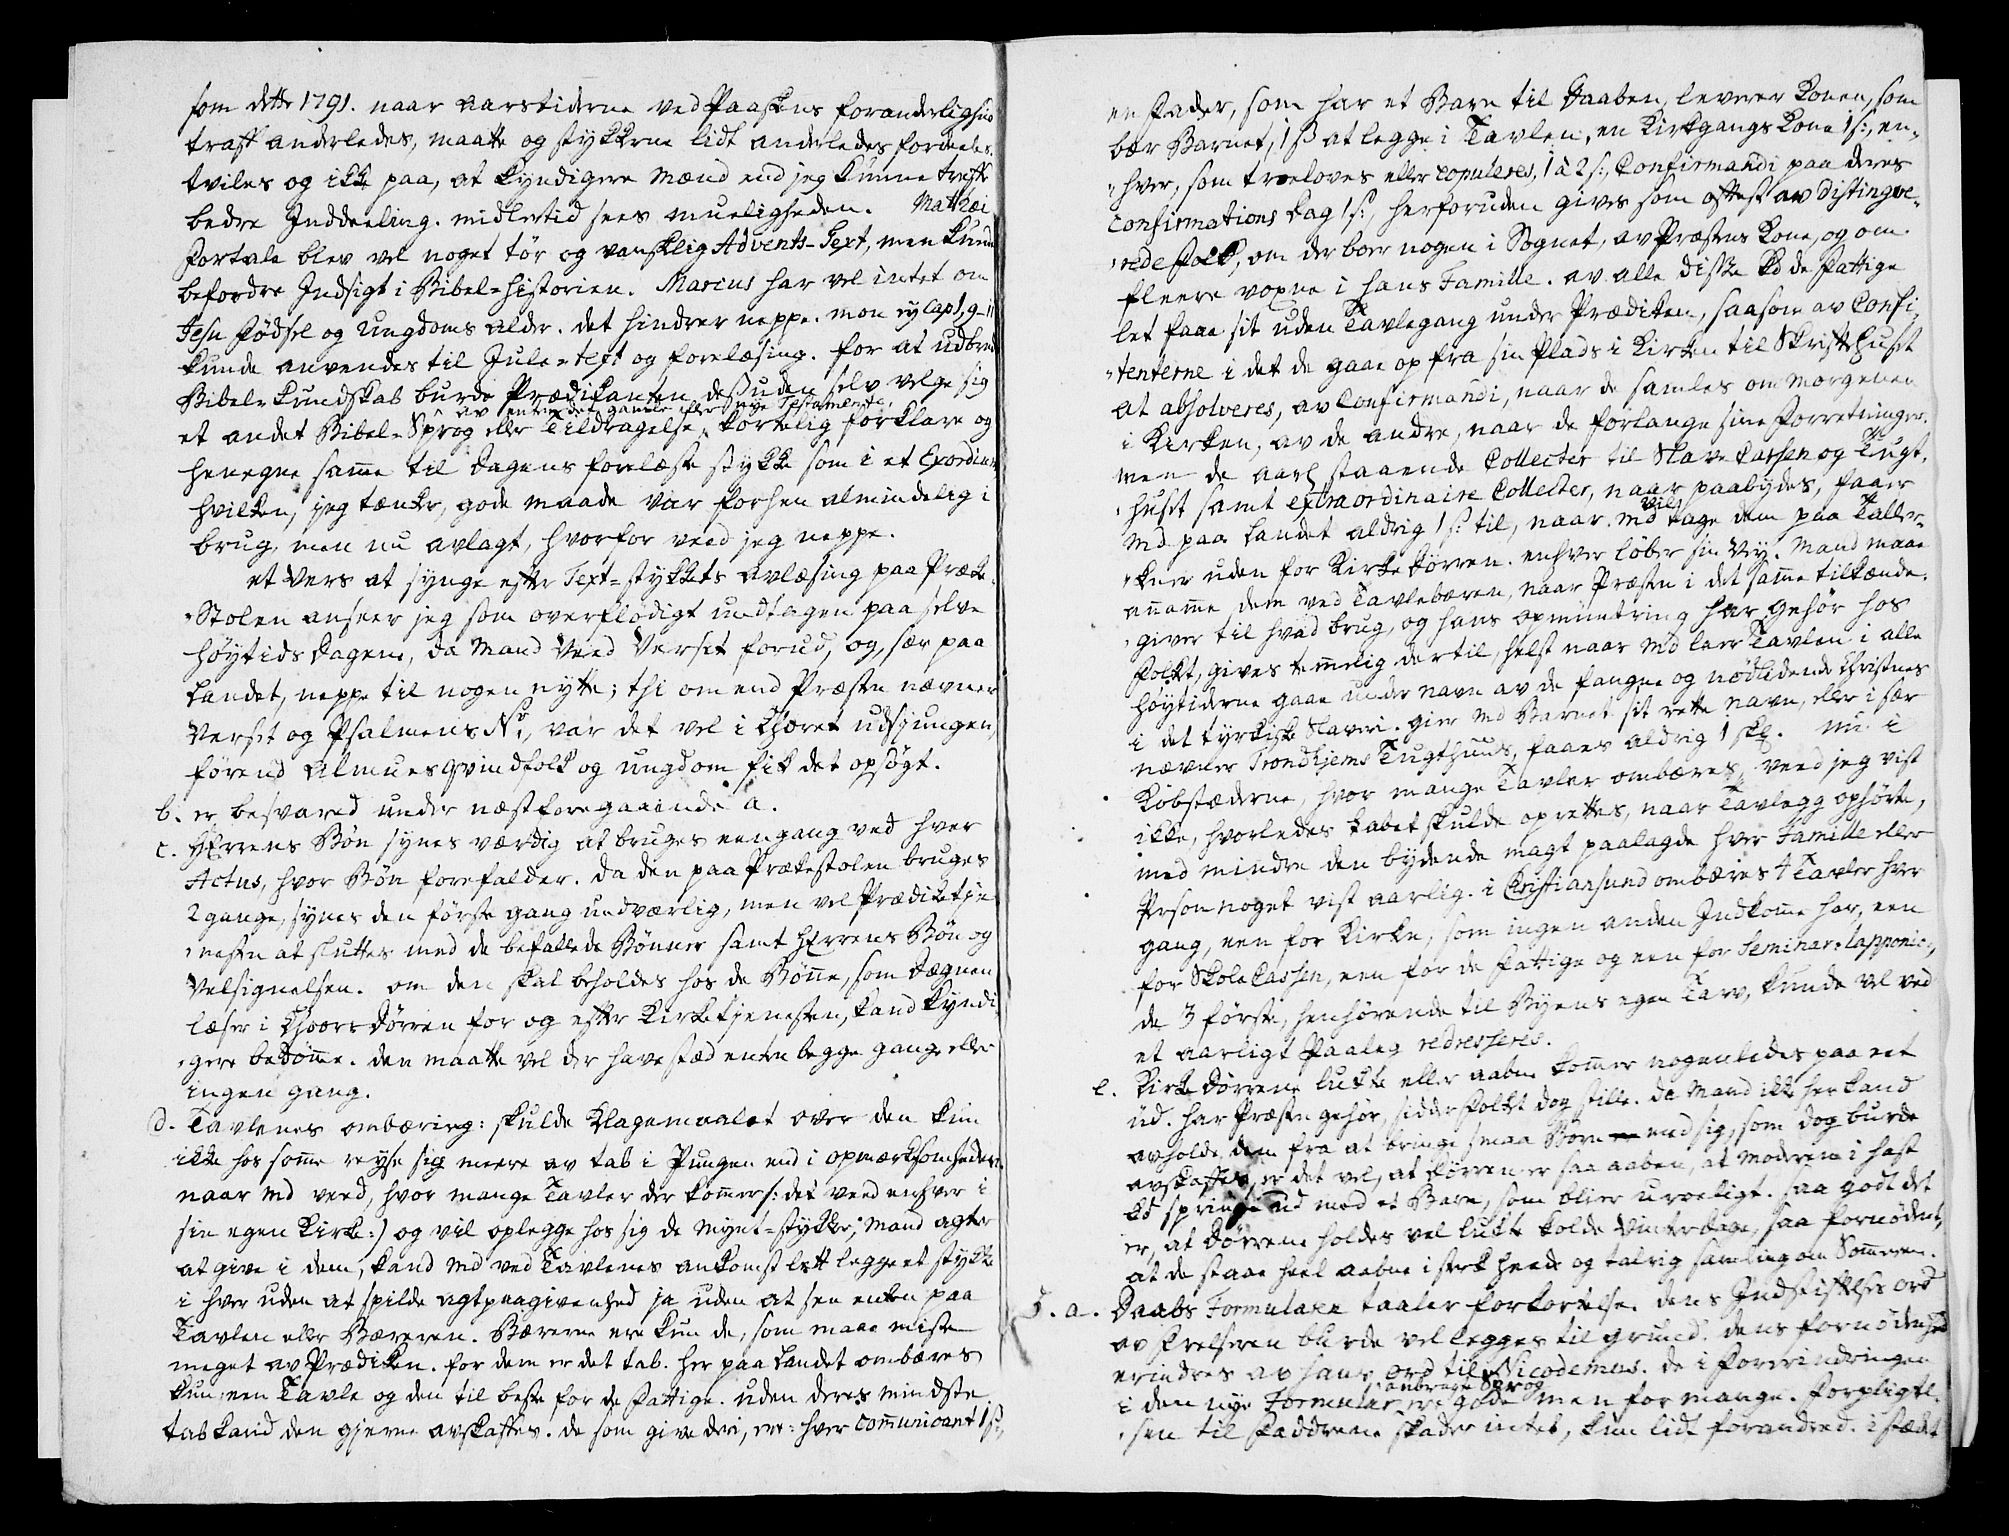 som dette 1791. naar aarstiderne ved Paaskens foranderlighed
traff anderledes, maatte og stykkerne lidt anderledes fordeeles.
tviles og ikke paa, at kyndigere Mænd end jeg kunne treffe
bedre Inddeeling. midlertid sees mueligheden. Mathæi
Fortale blev vel noget tör og vanskelig Advents-Text, men kunde
befordre Indsigt i Bibel-historien. Marcus har vel intet om
Jesu födsel og Ungdoms alder. det hindrer neppe. mon ey cap 1, 9-11
kunde anvendes til Jule-text og forelæsing. for at udbrede
Bibel-kundskab burde Prædikanten desuden selv velge sig
av enten det gamle eller nye Testamente,
et andet Bibel-Sprog eller Tildragelse, kortelig forklare og
henegne samme til dagens forelæste stykke som i et Exordium
hvilken, jeg tænker, gode maade var forhen almindelig i
brug, men nu avlagt, hvorfor veed jeg neppe.
et Vers at synge efter Text-stykkets avlæsing paa Præke-
Stolen anseer jeg som overflödigt undtagen paa selve
höytids dagene, da Mand veed Verset forud, og, sær paa
Landet, neppe til nogen nytte; thi om end Præsten nævner
Verset og Psalmens No, var det vel i Choret udsiungen,
förend Almues Qvindfolk og ungdom fik det opsögt.
b. er besvared under næstforegaaende a.
c. HErrens Bön synes værdig at bruges eengang ved hver
Actus, hvor Bön forefalder. da den paa Prækestolen bruges
2 gange, synes den förste gang undværlig, men vel Prædiketje-
nesten at sluttes med de befallede Bönner samt HErrens Bön og
Velsignelsen. om den skal beholdes hos de Bönne, som Dægnen
læser i Choors dörren for og efter Kirketjenesten, kand kyndi-
gere bedömme. den maatte vel der have stæd enten begge gange eller
ingen gang.
d. Tavlenes ombæring: skulde Klagemaalet over den kun
ikke hos somme reyse sig meere av tab i Pungen end i opmærksomheden.
naar Md veed, hvor mange Tavler der kommer /: det veed enhver i
sin egen Kirke :/ og vil oplegge hos sig de Mynt-stykker, Mand agter
at give i dem, kand Md ved Tavlenes ankomst lett legge et stykke
i hver uden at spilde agtpaagivenhed ja uden at see enten paa
Tavlen eller Bæreren. Bærerne ere kun de, som maae miste
meget av Prædiken. for dem er det tab. her paa Landet ombæres
kun een Tavle og den til beste for de fattige. uden deres mindste
tab kand den gjerne avskaffes. de som give deri, ere: hver communicant 1 s:,
en fader, som har et Barn til Daaben, leverer Konen, som
bær Barnet, 1 s at legge i Tavlen, en Kirkgangs Kone 1 s:, en-
hver, som troeloves eller copuleres, 1 à 2 s:, Confirmandi paa deres
Confirmations dag 1 s:, herforuden gives som oftest av distingve-
rede folk, om der boer nogen i Sognet, av Præstens Kone, og om
fleere voxne i hans Famille. av alle disse kd de fattige
let faae sit uden Tavlegang under Prædiken, saasom av Confi-
tenterne i det de gaae op fra sin Plads i Kirken til Skriftehuset
at absolveres, av Confirmandi, naar de samles om Morgenen
i Kirken, av de andre, naar de forlange sine forretninger.
men de aarl staaende Collecter til Slave Cassen og Tugt-
huset samt extraordinaire Collecter, naar paabydes, faaer
Md paa Landet aldrig 1 s: til, naar Md vil tage dem paa Taller-
kener uden for Kirke dörren. enhver löber sin Vey. Mand maae
annamme dem ved Tavlebæren, naar Præsten i det samme tilkænde-
giver til hvad brug, og hans opmuntring har gehör hos
folket, gives temmelig dertil, helst naar Md laer Tavlen i alle
höytiderne gaae under navn av de fangne og nödlidende Christnes
i det tyrkiske Slaveri. gier Md Barnet sit rette navn, eller i sær
nævner Trondhjems Tugthuus, faaes aldrig 1 skl. nu i
Kiöbstæderne, hvor mange Tavler ombæres, veed jeg vist
ikke, hvorledes tabet skulde oprettes, naar Tavlegg ophörte,
med mindre den bydende magt paalagde hver Famille eller
Person noget vist aarlig. i Christiansund ombæres 4 Tavler hver
gang, een for Kirke, som ingen anden Indkomme har, een
for Skole Cassen, een for de fattige og een for Seminar: lapponic:,
de 3 förste, henhörende til Byens egen Tarv, kunde vel ved
et aarligt Paaleg redresseres.
e. Kirke dörrene lukte eller aabne kommer nogenledes paa eet
ud. har Præsten gehör, sidder folket dog stille. da Mand ikke her kand
avholde dem fra at bringe smaa Börn med sig, som dog burde
avskaffes, er det vel, at dörren er saa aaben, at moderen i hast
kd springe ud med et Barn, som blier uroeligt. saa godt det
er, at dörrene holdes vel lukte kolde Vinterdage, saa fornödent,
at de staae heel aabne i sterk heede og talrig samling om Sommeren.
5. a. Daabs Formularen taaler forkortelse. dens Indstiftelses ord
av Frelseren burde vel legges til grund. dens fornödenhed
erindres av hans ord til Nicodemus. de i forerindringen
anbragte Sprog
i den nye Formular ere gode men for mange. forpligtel-
sen til fadderne skader intet, kun lidt forandred. i stædet